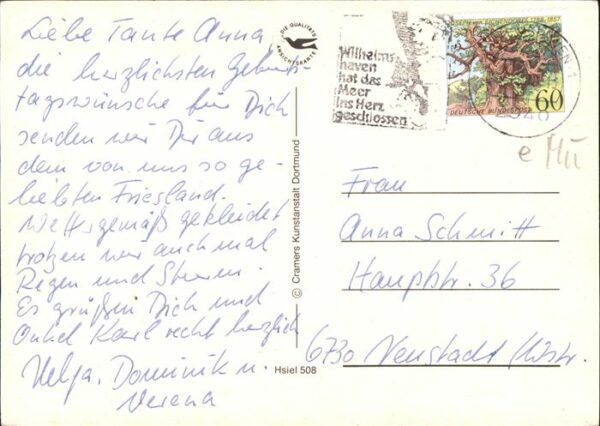 Liebe Tante Anna,
die herzlichsten Geburts-
tagswünsche für Dich
senden wir Dir aus
dem von uns so ge-
liebten Friesland.
Wettergemäß gekleidet
trotzen wir auch mal
Regen und Sturm.
Es grüßen Dich und
Onkel Karl recht herzlich
Helga, Dominik u.
Verena
DIE QUALITÄTS
ANSICHTSKARTE
© Cramers Kunstanstalt Dortmund
Hsiel 508
Wilhelms
haven
hat das
Meer
ins Herz
geschlossen
1788-1857
DEUTSCHE BUNDESPOST
60
Frau
Anna Schmitt
Hauptstr. 36
6730 Neustadt/Wstr.